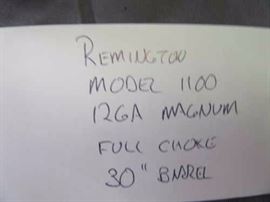 REMINGTON
MODEL 1100
12GA MAGNUM
FULL CHOKE
30" BARREL